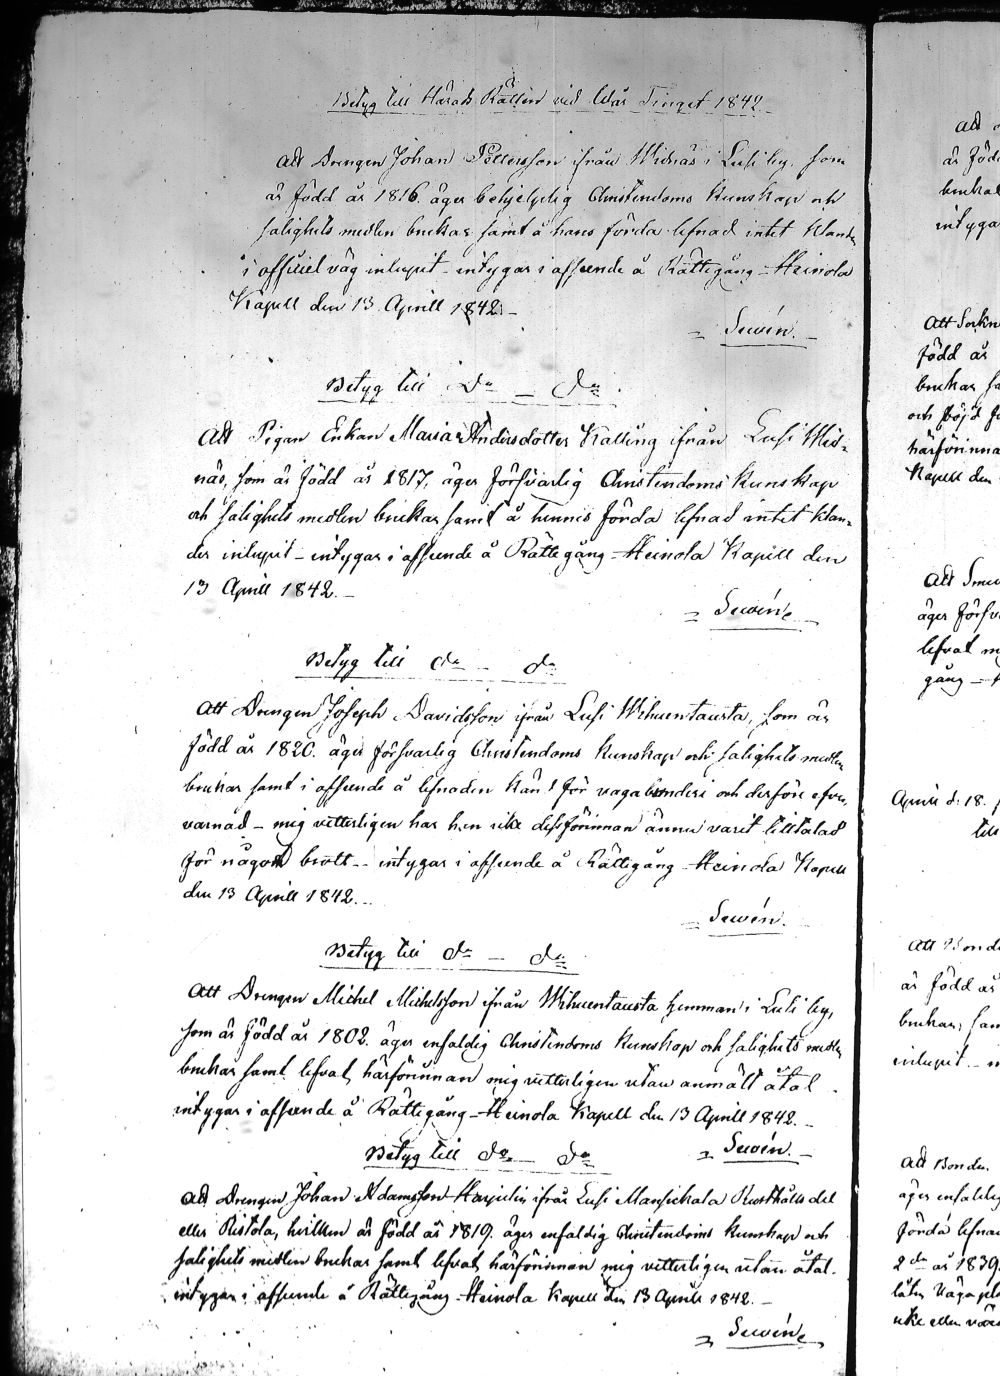 Betyg till Härads Rätten vid Wår Tinget 1842
Att Drengen Johan Pettersson ifrån Widnäs i Lusi by, som
är född år 1816. äger behjelplig Christendoms kunskap och
salighets medlen brukar samt å hans förda lefnad intet klander
i officiel väg inlupit – intygar i afseende å Rättegång – Heinola
Kapell den 13 Aprill 1842. –
Sewén.
Betyg till Do – do
Att Pigan Enkan Maria Andersdotter Kalling ifrån Lusi Wid-
näs, som är född år 1817, äger försvarlig Christendoms kunskap
och salighets medlen brukar samt å hennes förda lefnad intet klan-
der inlupit – intygar i afseende å Rättegång – Heinola Kapell den
13 Aprill 1842. –
Sewén
Betyg till do – do
Att Drengen Joseph Davidsson ifrån Lusi Wihuentausta, som är
född år 1820. äger försvarlig Christendoms kunskap och salighets medlen
brukar samt i afseende å lefnaden känd för vagabonderi och derföre
varnad – mig vetterligen har han icke dessförinnan ännu varit tilltalad
för något brott – intygar i afseende å Rättegång – Heinola Kapell
den 13 Aprill 1842. –
Sewén.
Betyg till do – do
Att Drengen Michel Michelsson ifrån Wihuentausta hemman i Lusi by,
som är född år 1802. äger enfaldig Christendoms kunskap och salighets medlen
brukar samt lefvat härförinnan mig vetterligen utan anmält åtal
intygar i afseende å Rättegång – Heinola Kapell den 13 Aprill 1842. –
Sewén. –
Betyg till do – do
Att Drengen Johan Adamsson ifrån Lusi Mansickala Rusthålls del
eller Ristola, hvilken är född år 1819. äger enfaldig Christendoms kunskap och
salighets medlen brukar samt lefvat härförinnan mig vetterligen utan åtal.
intygar i afseende å Rättegång – Heinola Kapell den 13 Aprill 1842. –
Sewén
Att
är född
brukar
intygar
Att
född år
brukar
och
härförinnan
Kapell den
Att
äger
lefvat
gång –
Aprill d. 18.
till
Att Bonde
är född år
brukar,
inlupit –
Att Bonden
äger enfaldig
förda lefnad
2 år 1839.
icke eller